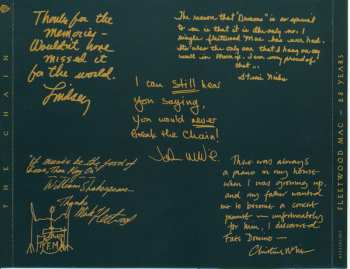 THE CHAIN
Thanks for the
memories –
Wouldn't have
missed it
for the world.
Lindsey
The reason that "Dreams" is so special
to us is that it is the only no. 1
single Fleetwood Mac has ever had.
It's also the only one that I hang on my
wall in . I am very proud of
that ...
Stevie Nicks
I can still hear
You saying,
You would never
Break the Chain!
John McVie
"If music be the food of
love, then play on"
William Shakespeare
Thanks
Mick Fleetwood
There was always
a piano in my house
when I was growing up,
and my father wanted
me to become a concert
pianist – unfortunately
for him, I discovered
Fats Domino –
Christine McVie
FLEETWOOD MAC – 25 YEARS